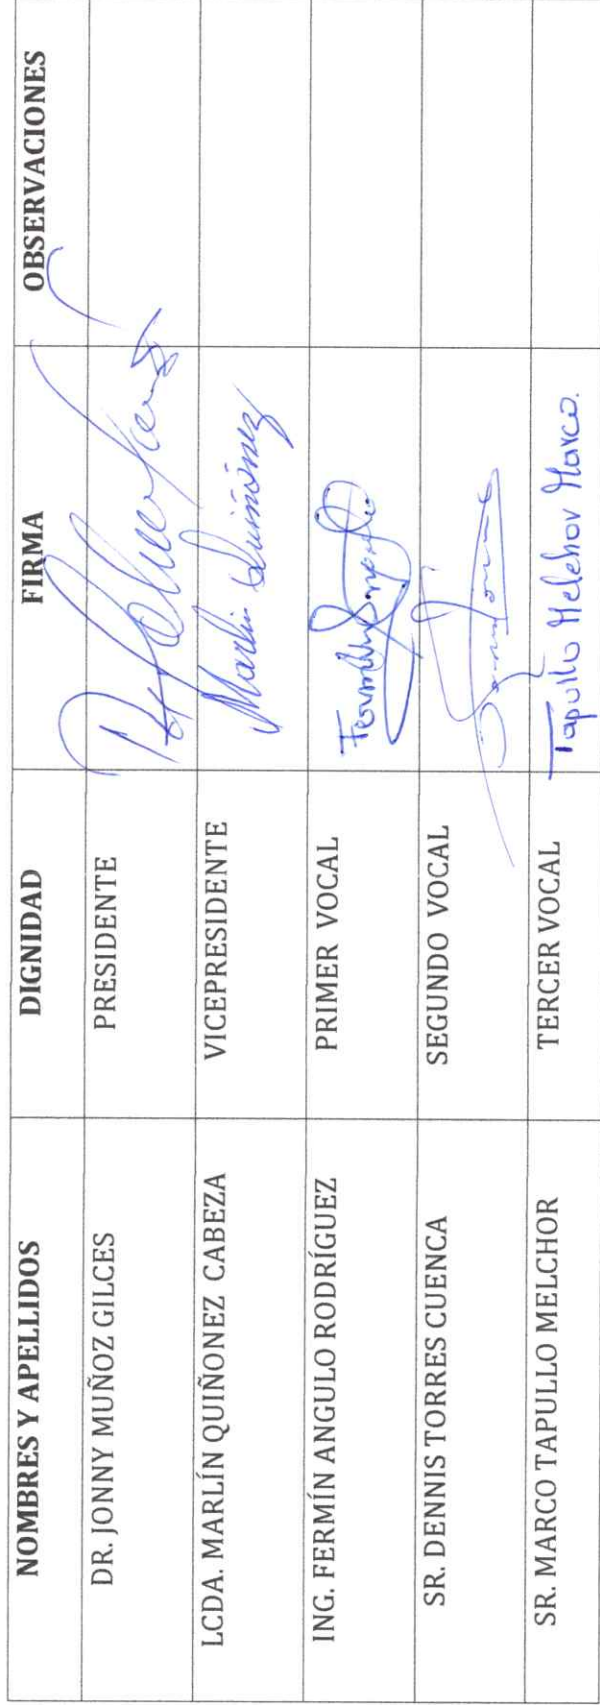 NOMBRES Y APELLIDOS DIGNIDAD FIRMA OBSERVACIONES
DR. JONNY MUÑOZ GILCES PRESIDENTE
LCDA. MARLÍN QUIÑONEZ CABEZA VICEPRESIDENTE Marlin Quiñónez
ING. FERMÍN ANGULO RODRÍGUEZ PRIMER VOCAL
SR. DENNIS TORRES CUENCA SEGUNDO VOCAL
SR. MARCO TAPULLO MELCHOR TERCER VOCAL Tapullo Melchor Marco.